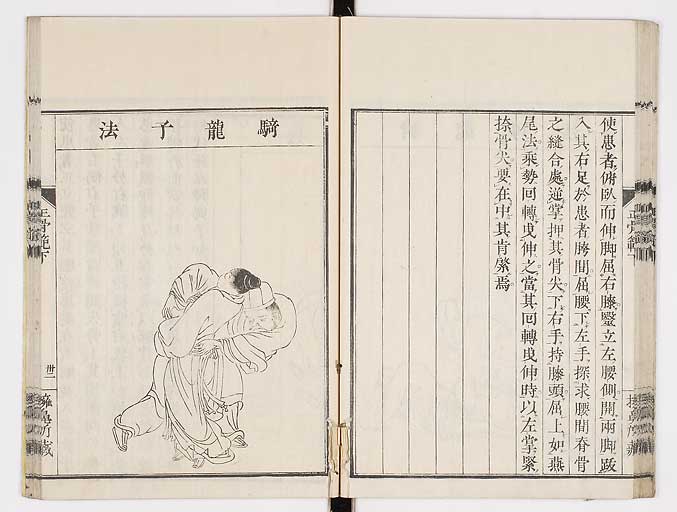 使患者俯臥而伸脚屈右膝竪立左腰側開兩脚跋
入其右足於患者胯間屈腰下左手探求腰間脊骨
之縫合處逆掌押其骨尖下右手持膝頭屈上如燕
尾法乘勢回轉曳伸之當其回轉曳伸時以左掌緊
捺骨尖要在中其肯綮焉
騎龍子法
正骨範下
卅二